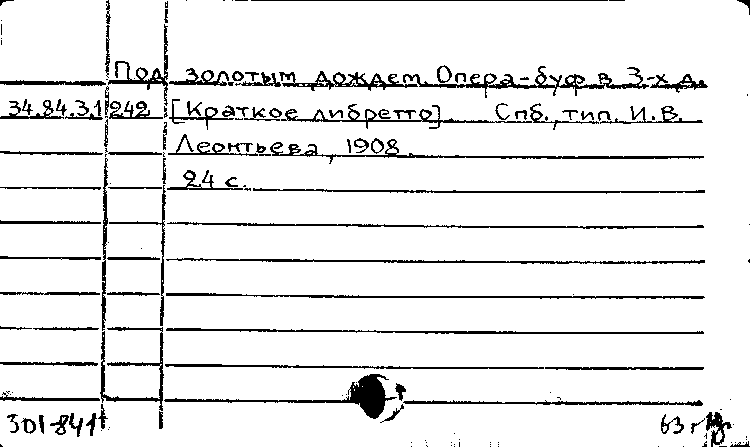 Под золотым дождем. Опера-буф в 3-х д.
34.84.3.1 242 [Краткое либретто]. Спб., тип. И.В.
Леонтьева, 1908.
24 с.
301-841 63 г